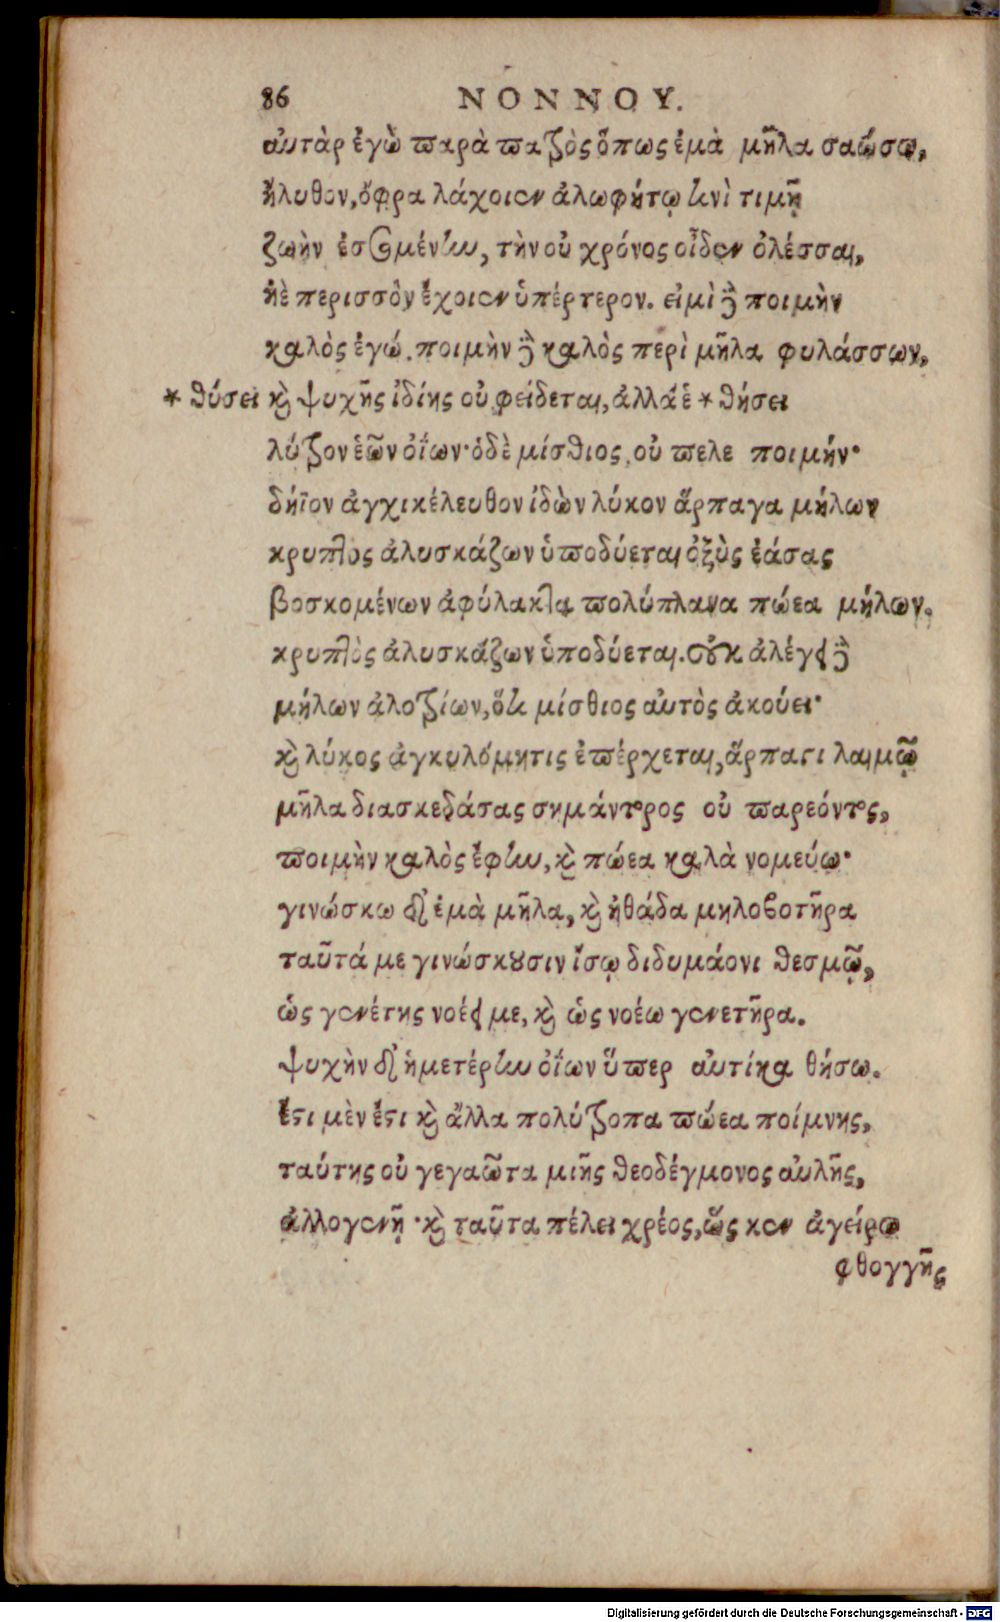 86 ΝΟΝΝΟΥ.
αὐτὰρ ἐγὼ παρὰ πατρὸς ὅπως ἐμὰ μῆλα σαώσω,
ἤλυθον, ὄφρα λάχοιεν ἀλωφήτῳ ἑνὶ τιμῇ
ζωὴν ἐσομένην, τὴν οὐ χρόνος οἶδεν ὀλέσσαι,
ἠὲ περισσὸν ἔχοιεν ὑπέρτερον. εἰμὶ δὲ ποιμὴν
καλὸς ἐγώ. ποιμὴν δὲ καλὸς περὶ μῆλα φυλάσσων,
* θύσει καὶ ψυχῆς ἰδίης οὐ φείδεται, ἀλλά ἑ * θήσει
λύτρον ἑῶν ὀΐων· ὁδὲ μίσθιος, οὐ πελε ποιμήν·
δήϊον ἀγχικέλευθον ἰδὼν λύκον ἅρπαγα μήλων
κρυπτος ἀλυσκάζων ὑποδύεται ὀξὺς ἐάσας
βοσκομένων ἀφύλακτα πολύπλανα πώεα μήλων.
κρυπτὸς ἀλυσκάζων ὑποδύεται. οὐκ ἀλέγει δὲ
μήλων ἀλοτρίων, ὅτι μίσθιος αὐτὸς ἀκούει·
καὶ λύκος ἀγκυλόμητις ἐπέρχεται, ἅρπαστι λαιμῷ
μῆλα διασκεδάσας σημάντορος οὐ παρεόντος,
ποιμὴν καλὸς ἔφην, καὶ πώεα καλὰ νομεύω·
γινώσκω δ' ἐμὰ μῆλα, καὶ ἠθάδα μηλοβοτῆρα
ταῦτά με γινώσκουσιν ἴσῳ διδυμάονι θεσμῷ,
ὡς γενέτης νοέει με, καὶ ὡς νοέω γενετῆρα.
ψυχὴν δ' ἡμετέρην ὀΐων ὕπερ αὐτίκα θήσω.
ἔστι μὲν ἔστι καὶ ἄλλα πολύτροπα πώεα ποίμνης,
ταύτης οὐ γεγαῶτα μιῆς θεοδέγμονος αὐλῆς,
ἀλλογενῆ · καὶ ταῦτα πέλει χρέος, ὥς κεν ἀγείρω
φθογγῆς
Digitalisierung gefördert durch die Deutsche Forschungsgemeinschaft - DFG